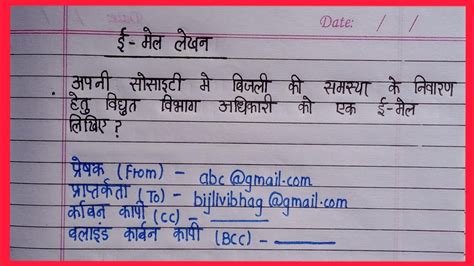 Date: / /
Date: / /
ई-मेल लेखन
अपनी सोसाइटी मे बिजली की समस्या के निवारण
हेतु विद्युत विभाग अधिकारी को एक ई-मेल
लिखिए ?
प्रेषक (From) - abc@gmail.com
प्राप्तर्कता (To) - bijlivibhag@gmail.com
र्काबन कापी (CC) - ______
बलाइंड कार्बन कापी (BCC) - ______